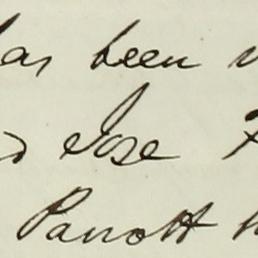 has been
Jose
Parrott